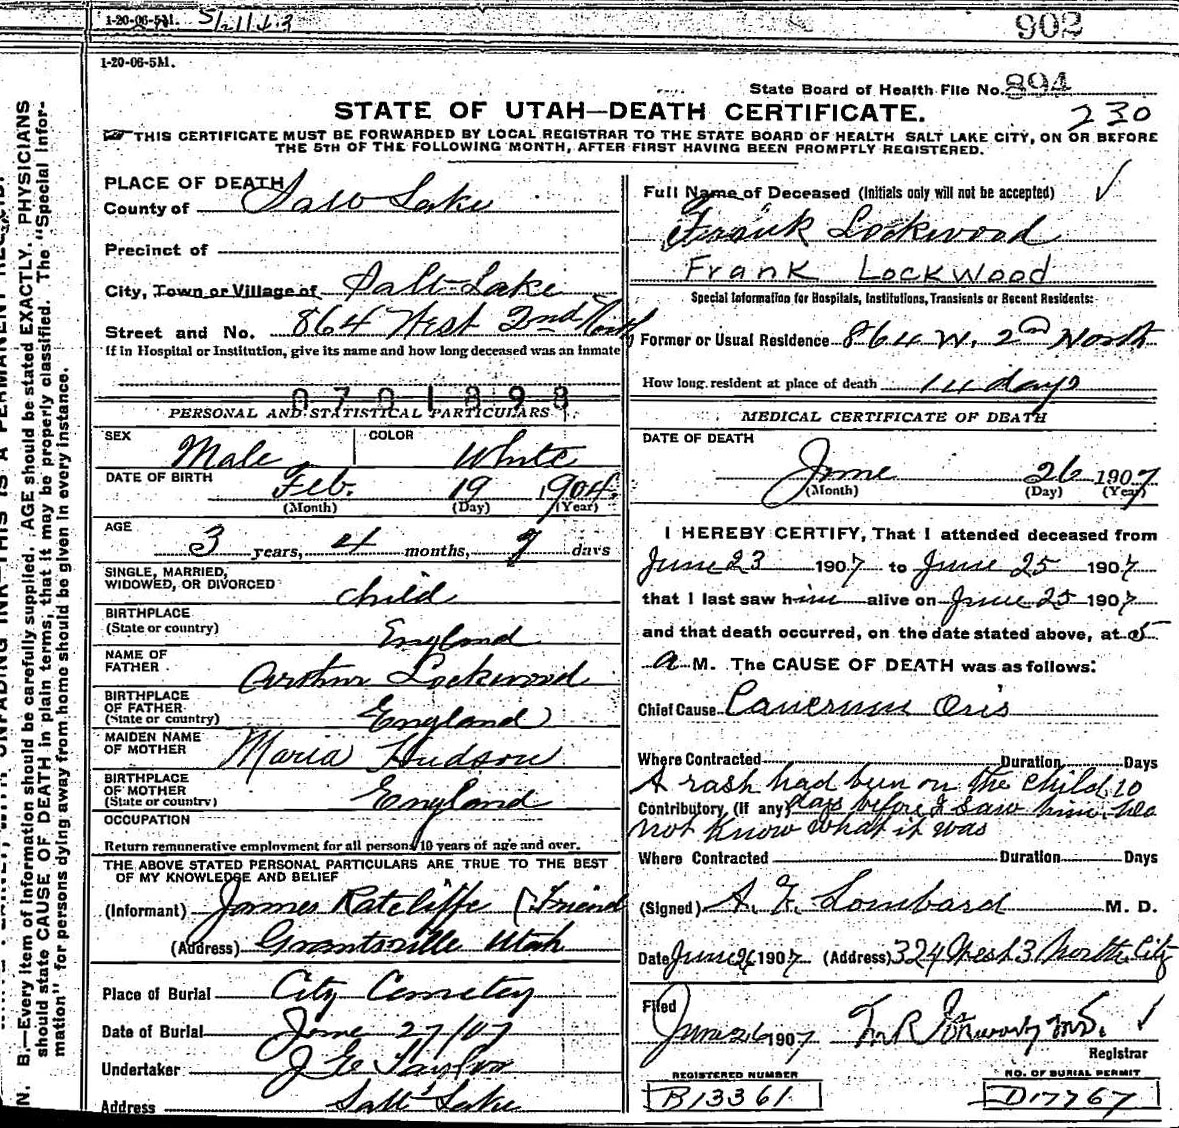 1-20-06-5M.
902
1-20-06-5M.
State Board of Health File No. 894
STATE OF UTAH—DEATH CERTIFICATE.
230
THIS CERTIFICATE MUST BE FORWARDED BY LOCAL REGISTRAR TO THE STATE BOARD OF HEALTH SALT LAKE CITY, ON OR BEFORE
THE 5TH OF THE FOLLOWING MONTH, AFTER FIRST HAVING BEEN PROMPTLY REGISTERED.
PLACE OF DEATH
County of Salt Lake
Precinct of
City, Town or Village of Salt Lake
Street and No. 864 West 2nd North
If in Hospital or Institution, give its name and how long deceased was an inmate
0701898
PERSONAL AND STATISTICAL PARTICULARS
SEX Male COLOR White
DATE OF BIRTH Feb. 19 1904
(Month) (Day) (Year)
AGE
3 years, 4 months, 7 days
SINGLE, MARRIED,
WIDOWED, OR DIVORCED child
BIRTHPLACE
(State or country) England
NAME OF
FATHER Arthur Lockwood
BIRTHPLACE
OF FATHER
(State or country) England
MAIDEN NAME
OF MOTHER Maria Hudson
BIRTHPLACE
OF MOTHER
(State or country) England
OCCUPATION
Return remunerative employment for all persons 10 years of age and over.
THE ABOVE STATED PERSONAL PARTICULARS ARE TRUE TO THE BEST
OF MY KNOWLEDGE AND BELIEF
(Informant) James Ratcliffe (Friend
(Address) Grantsville Utah
Place of Burial City Cemetery
Date of Burial June 27/07
Undertaker J. E. Taylor
Address Salt Lake
Full Name of Deceased (Initials only will not be accepted)
Frank Lockwood
Frank Lockwood
Special Information for Hospitals, Institutions, Transients or Recent Residents:
Former or Usual Residence 864 W. 2nd North
How long resident at place of death 14 days
MEDICAL CERTIFICATE OF DEATH
DATE OF DEATH
June 26 1907
(Month) (Day) (Year)
I HEREBY CERTIFY, That I attended deceased from
June 23 1907 to June 25 1907
that I last saw him alive on June 25 1907
and that death occurred, on the date stated above, at 5
a M. The CAUSE OF DEATH was as follows:
Chief Cause Cancrum Oris
Where Contracted Duration Days
A rash had been on the child 10
Contributory (If any) days before I saw him,
not know what it was
Where Contracted Duration Days
(Signed) A. F. Lombard M. D.
Date June 26 1907 (Address) 324 West 3 North City
Filed
June 26 1907
Registrar
REGISTERED NUMBER
B13361
NO. OF BURIAL PERMIT
D17767
N. B.—Every item of Information should be carefully supplied. AGE should be stated EXACTLY. PHYSICIANS
should state CAUSE OF DEATH in plain terms, that it may be properly classified. The "Special Infor-
mation" for persons dying away from home should be given in every instance.